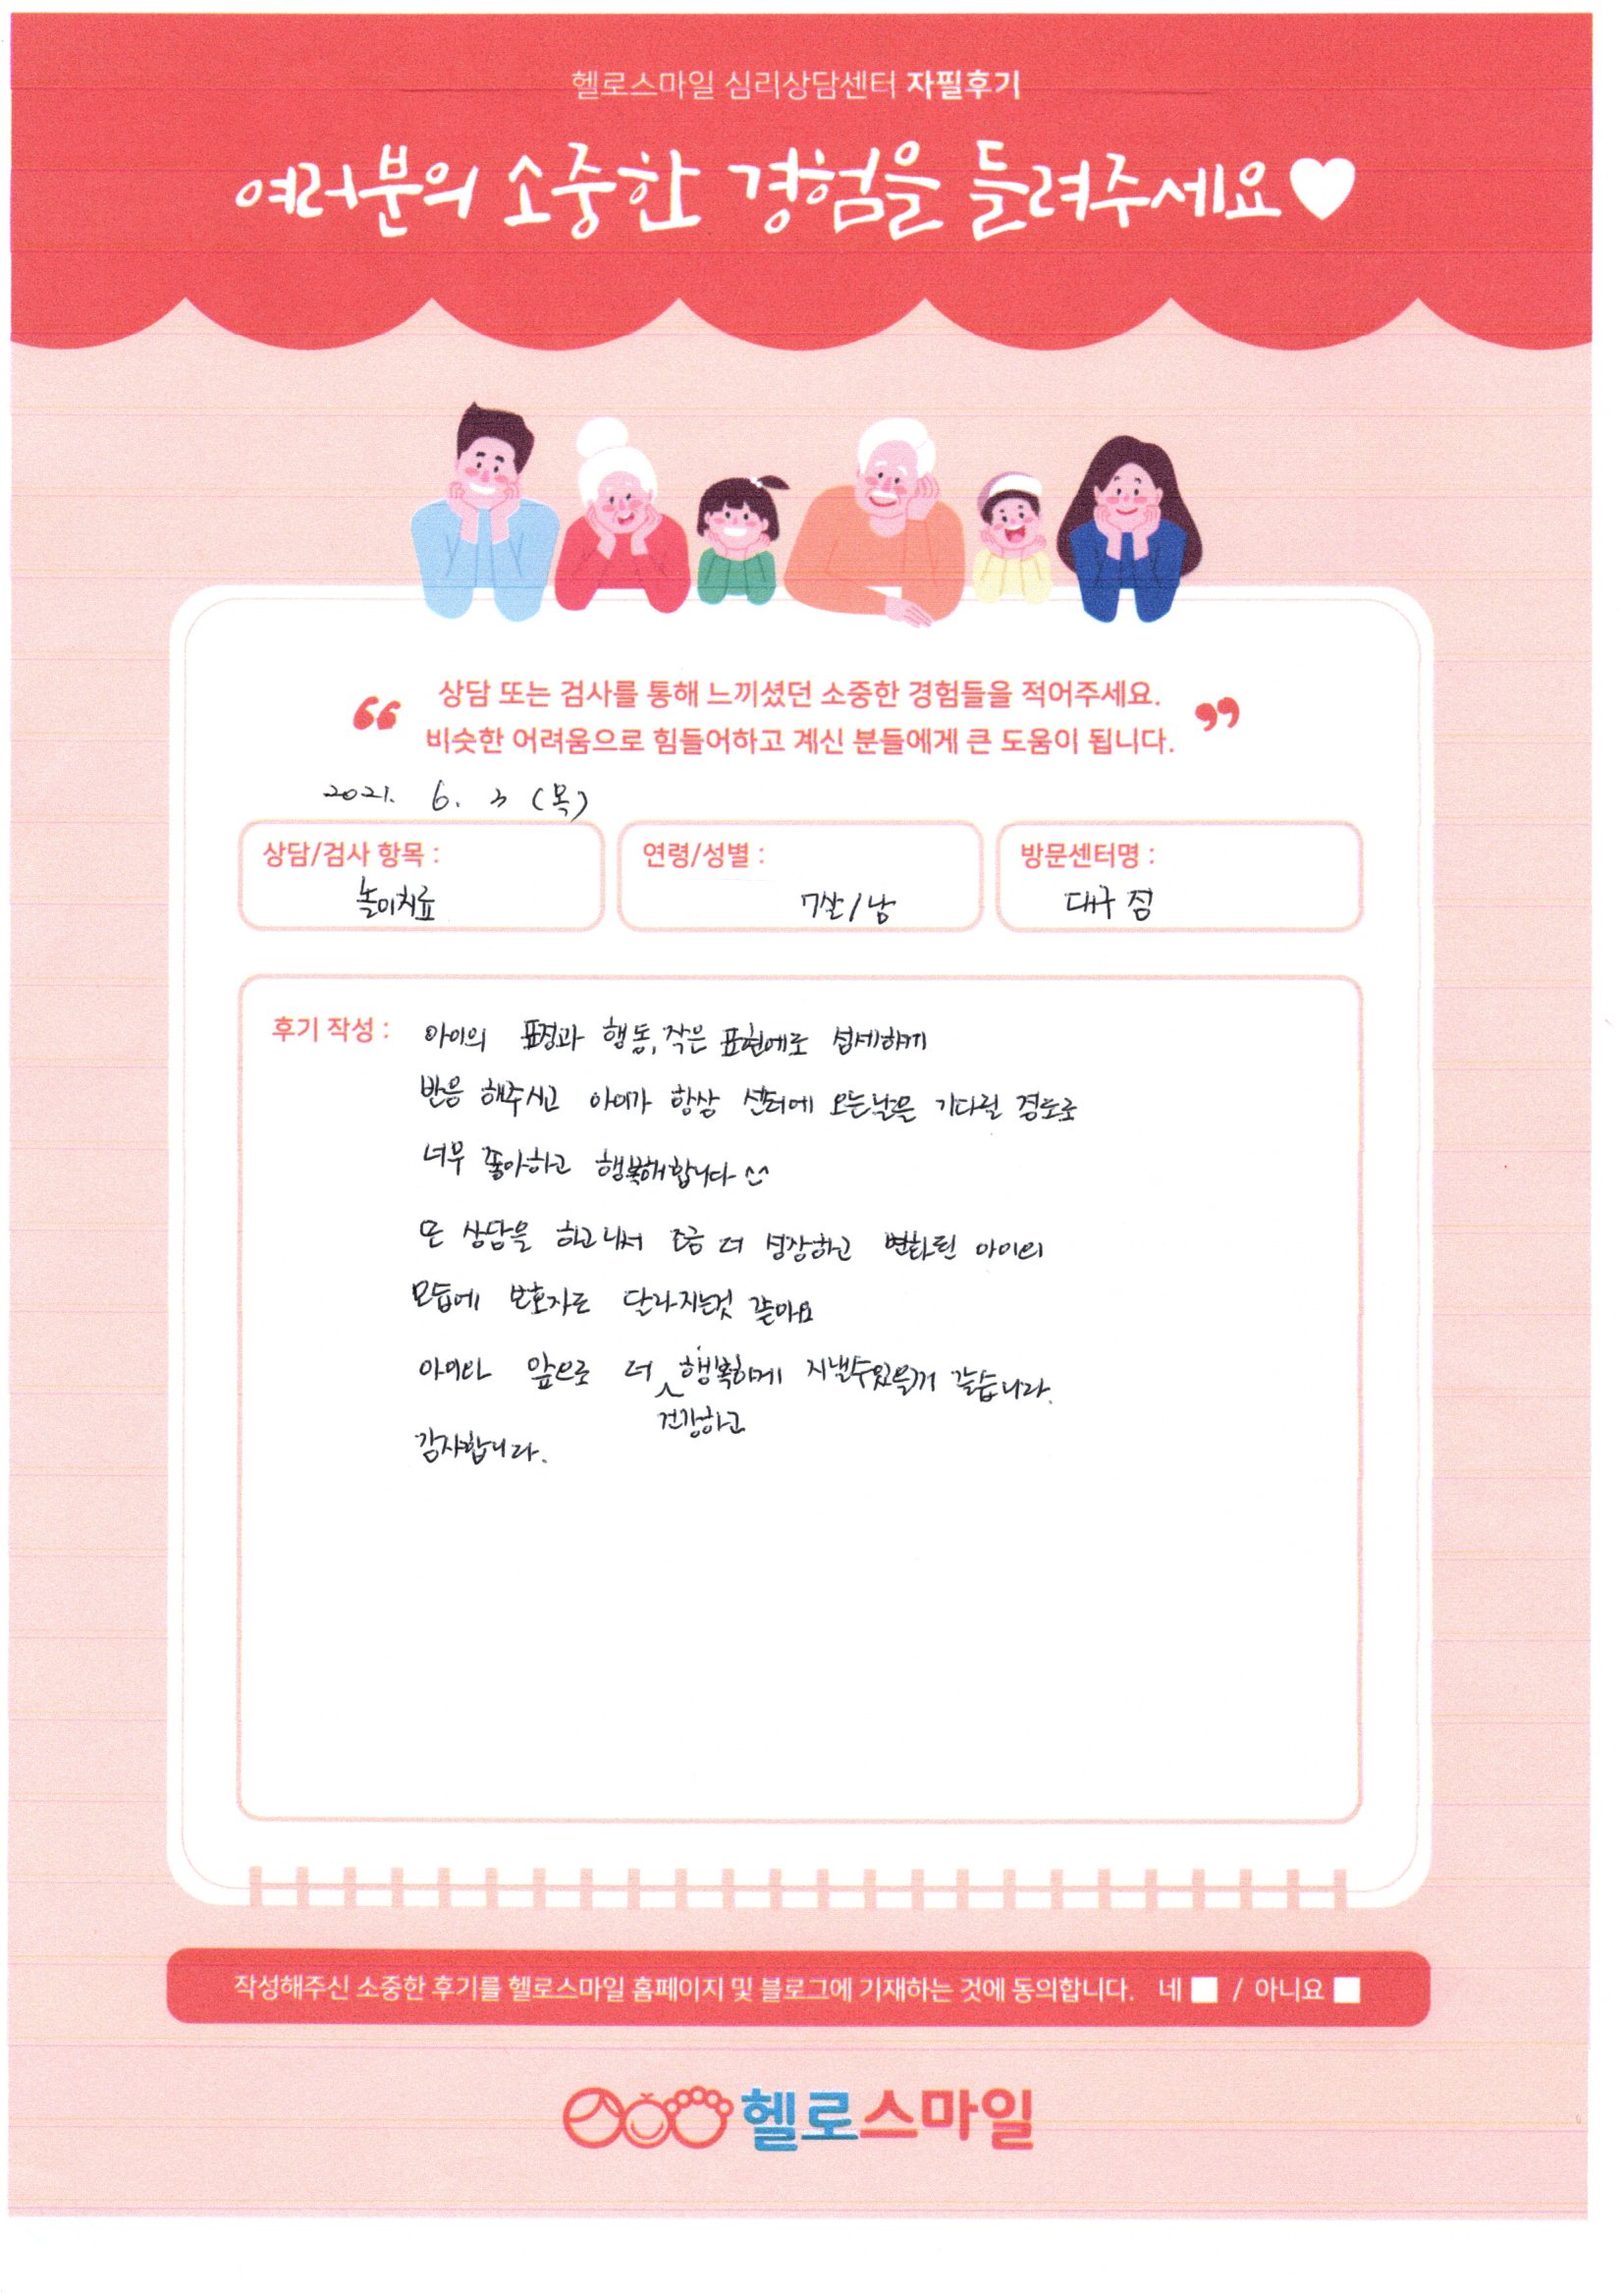 헬로스마일 심리상담센터 자필후기
여러분의 소중한 경험을 들려주세요
상담 또는 검사를 통해 느끼셨던 소중한 경험들을 적어주세요.
비슷한 어려움으로 힘들어하고 계신 분들에게 큰 도움이 됩니다.
2021. 6. 3 (목)
상담/검사 항목 :
놀이치료
연령/성별 :
7살/남
방문센터명 :
대구점
후기 작성 :
아이의 표정과 행동, 작은 표현에도 섬세하게
반응 해주시고 아이가 항상 센터에 오는날을 기다릴 정도로
너무 좋아하고 행복해합니다^^
또 상담을 하고나서 조금 더 성장하고 변화된 아이의
모습에 보호자도 달라지는것 같아요
아이와 앞으로 더 행복하게 지낼수있을거 같습니다.
건강하고
감사합니다.
작성해주신 소중한 후기를 헬로스마일 홈페이지 및 블로그에 기재하는 것에 동의합니다. 네 / 아니요
헬로스마일